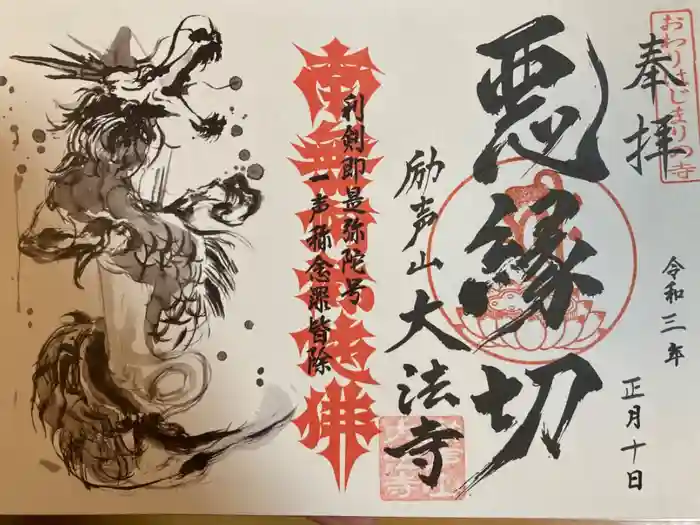 おわりはじまりの寺
奉拝
令和三年
正月十日
悪縁切
励声山
大法寺
利剣即是弥陀号
一声称念罪皆除
南無阿弥陀佛